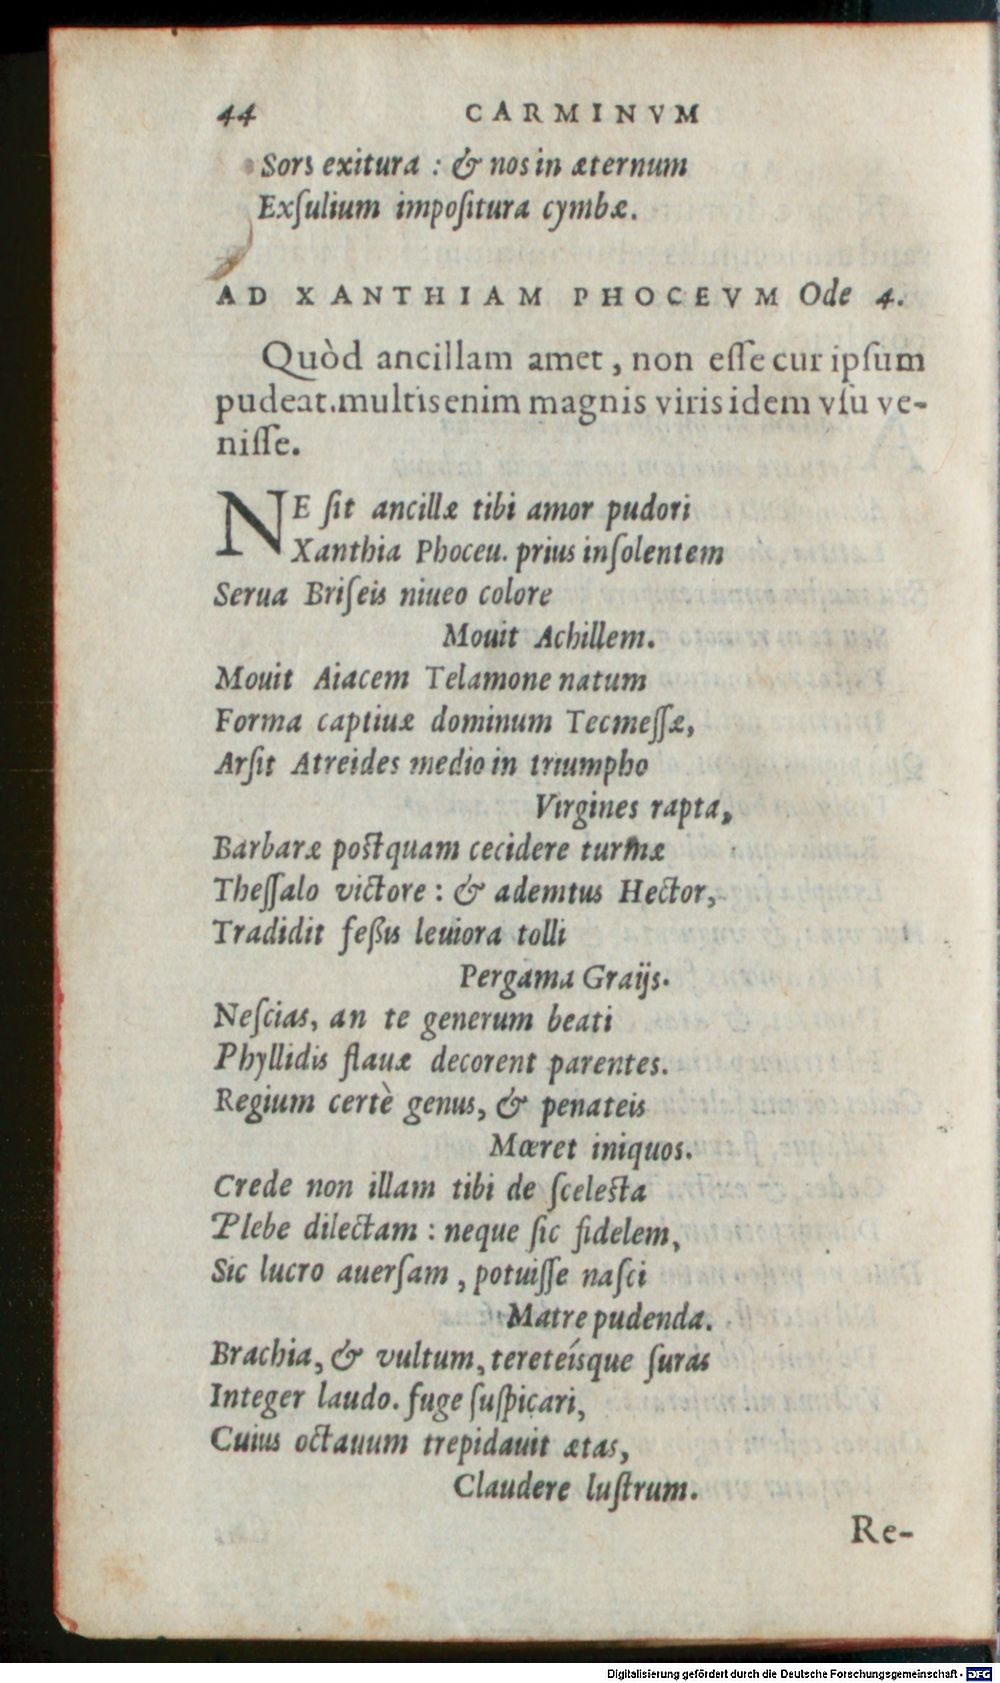 44 CARMINVM
Sors exitura : & nos in æternum
Exſulium impoſitura cymbæ.
AD XANTHIAM PHOCEVM Ode 4.
Quòd ancillam amet, non eſſe cur ipſum
pudeat. multis enim magnis viris idem vſu ve-
niſſe.
NE ſit ancillæ tibi amor pudori
Xanthia Phoceu. prius inſolentem
Serua Briſeis niueo colore
Mouit Achillem.
Mouit Aiacem Telamone natum
Forma captiuæ dominum Tecmeſſæ,
Arſit Atreides medio in triumpho
Virgines rapta,
Barbaræ postquam cecidere turmæ
Theſſalo victore : & ademtus Hector,
Tradidit feßis leuiora tolli
Pergama Graijs.
Neſcias, an te generum beati
Phyllidis flauæ decorent parentes.
Regium certè genus, & penateis
Mœret iniquos.
Crede non illam tibi de ſcelesta
Plebe dilectam : neque ſic fidelem,
Sic lucro auerſam, potuiſſe naſci
Matre pudenda.
Brachia, & vultum, tereteísque ſuras
Integer laudo. fuge ſuſpicari,
Cuius octauum trepidauit ætas,
Claudere luſtrum.
Re-
Digitalisierung gefördert durch die Deutsche Forschungsgemeinschaft - DFG